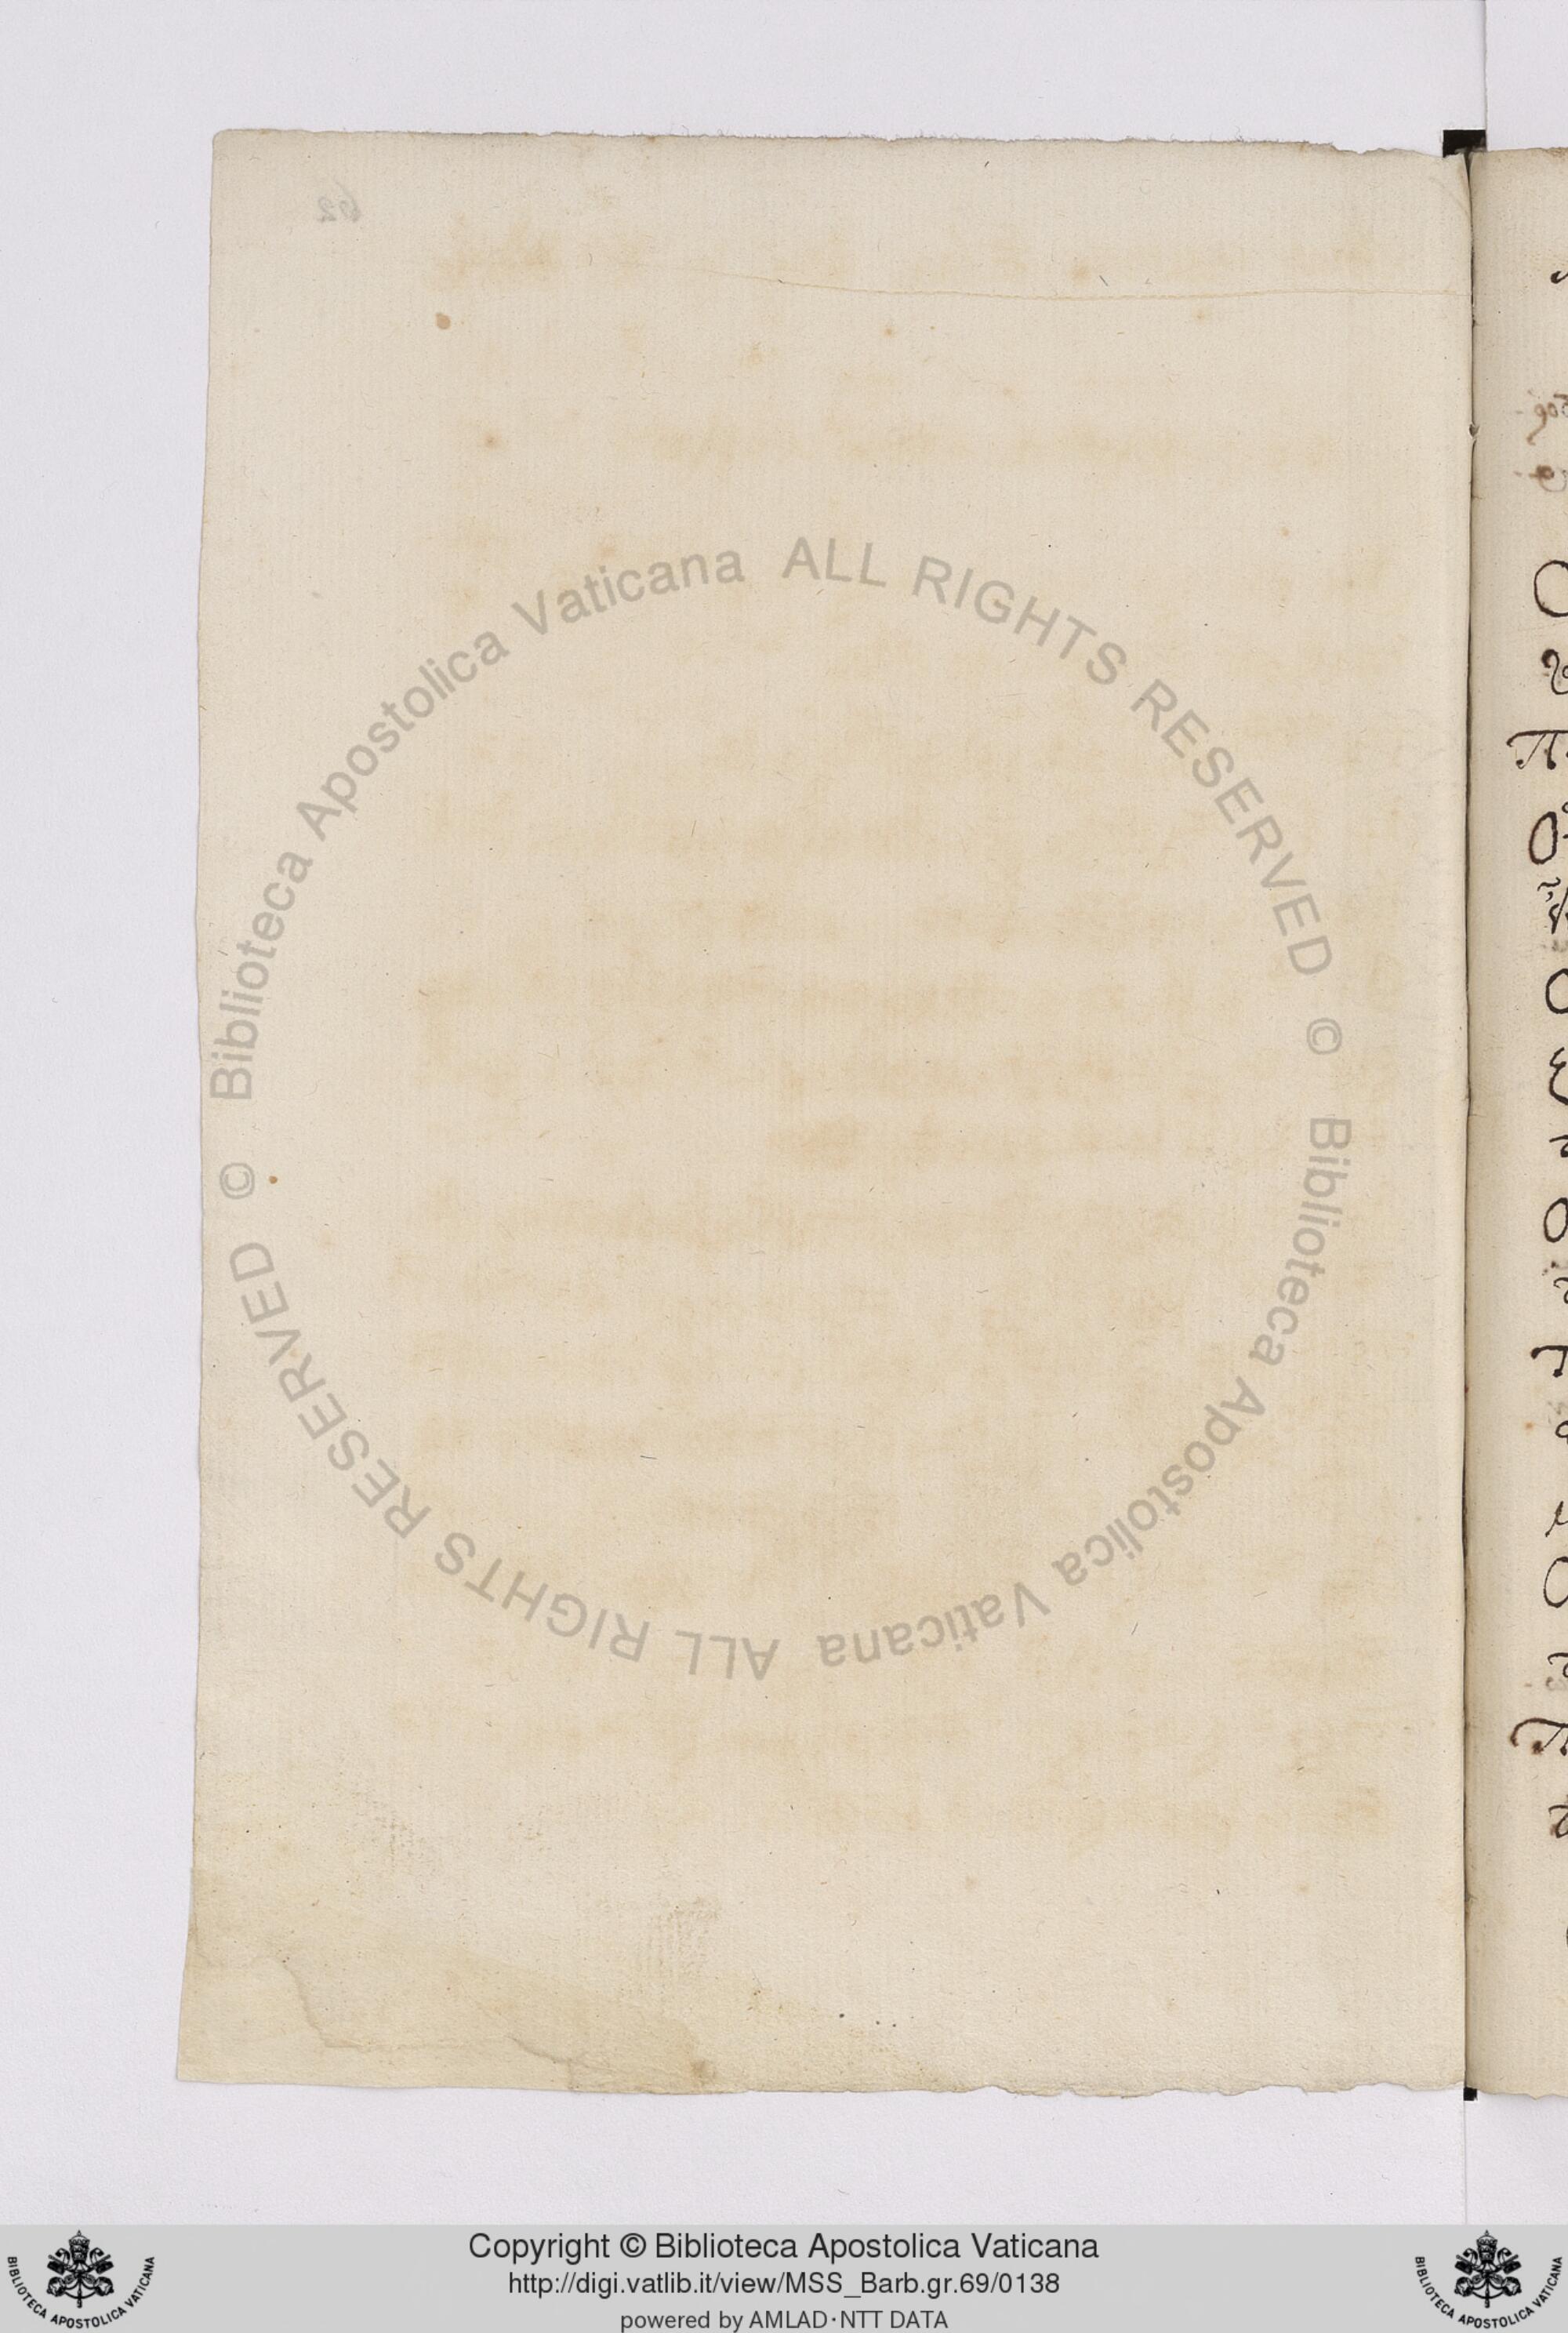 62
© Biblioteca Apostolica Vaticana ALL RIGHTS RESERVED © Biblioteca Apostolica Vaticana ALL RIGHTS RESERVED
Copyright © Biblioteca Apostolica Vaticana
http://digi.vatlib.it/view/MSS_Barb.gr.69/0138
powered by AMLAD·NTT DATA
BIBLIOTECA APOSTOLICA VATICANA
BIBLIOTECA APOSTOLICA VATICANA